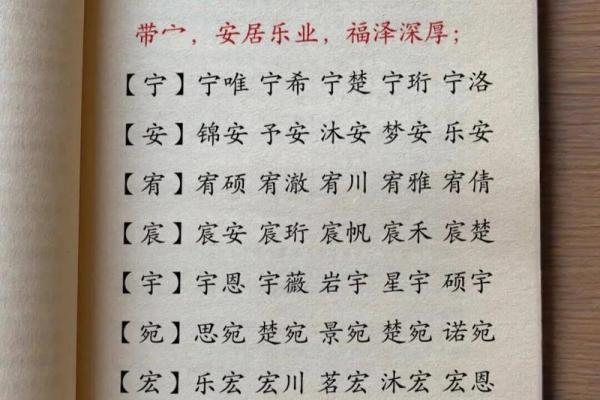 带宀，安居乐业，福泽深厚；
【宁】宁唯 宁希 宁楚 宁珩 宁洛
【安】锦安 予安 沐安 梦安 乐安
【宥】宥硕 宥澈 宥川 宥雅 宥倩
【宸】宸安 宸珩 宸帆 宸禾 宸楚
【宇】宇恩 宇薇 岩宇 星宇 硕宇
【宛】思宛 楚宛 景宛 楚宛 诺宛
【宏】乐宏 宏川 茗宏 沐宏 宏恩